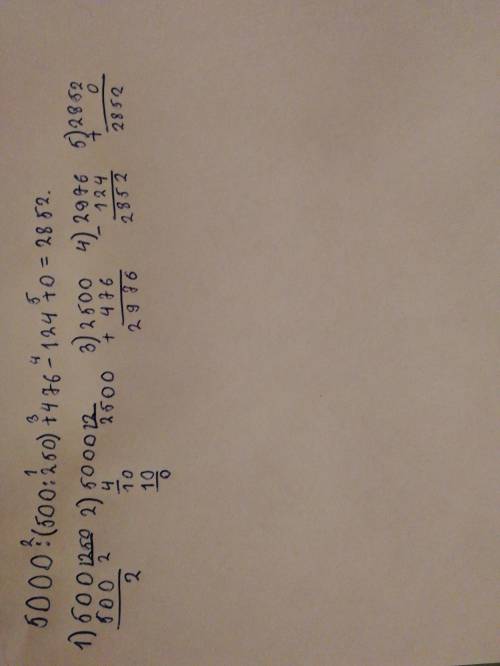 5000:(500:250)+476-124+0=2852.
1 2 3 4 5
1) 500 | 250 2) 5000 | 2 3) 2500 4) 2976 5) 2852
500 2 4 2500 + 476 - 124 + 0
2 10 2976 2852 2852
10
0